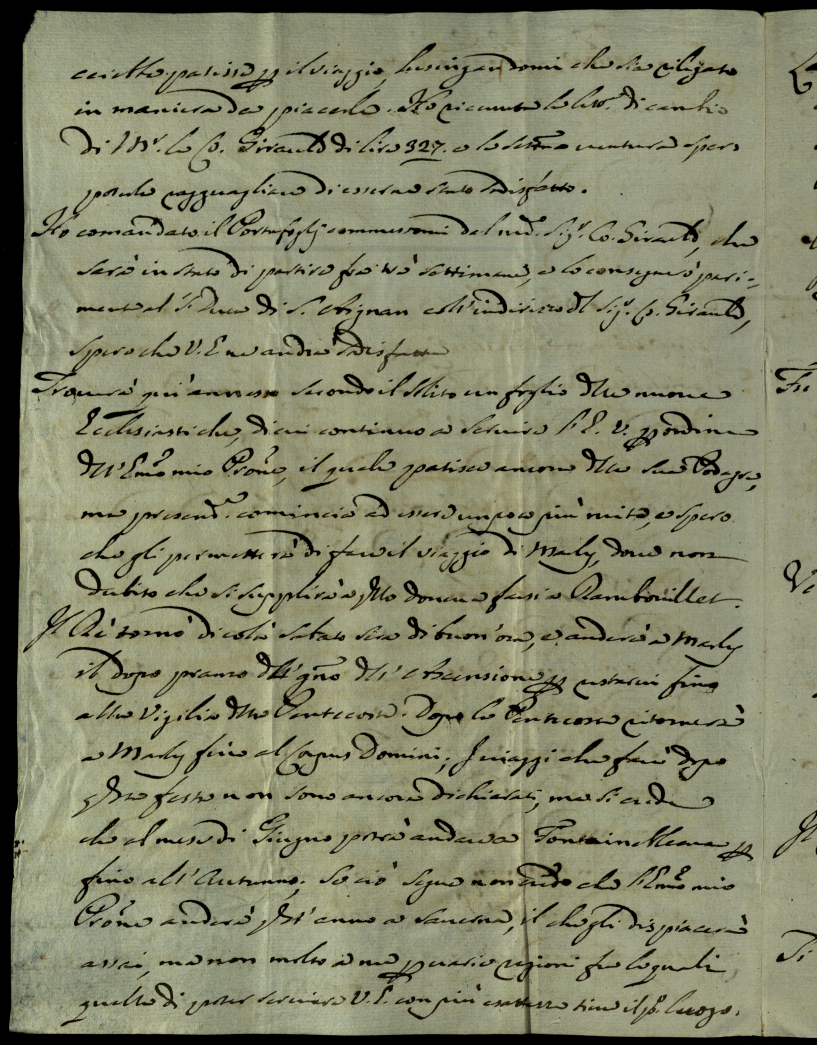 patisse p il viaggio, lusingandomi che sia rilegato
in maniera da piacerle. Ho ricevuto la lettª. di cambio
di Mr. le C. Girault di lire 327. e la settna ventura spero
poterle ragguagliare di essere stato sodisfatto.
Ho comandato il Portafoglj commessomi dal md. Sigr. Co. Girault, che
sarà in stato di partire fra tre settimane, e lo consegnerò pari-
mente al Sr Duca di S. Aignan coll'indirizzo del Sigr. Co. Girault,
spero che V. E. ne andrà sodisfatta
Troverà qui annesso secondo il solito un foglio delle nuove
Ecclesiastiche, di cui continuo a servire l'E. V. p ordine
dell'Emo mio Prone, il quale patisce ancora della sua Podagra,
ma presente. comincia ad essere un poco più mite, e spero
che gli permetterà di fare il viaggio di Marly, dove non
dubito che si supplirà a qto doveva farsi a Rambouillet.
Il Rè tornò di colà sabato sera di buon'ora, e anderà a Marly
il dopo pranzo dell'gno dell'Ascensione p restarvi fino
alla Vigilia della Pentecoste. Dopo la Pentecoste ritornerà
a Marly fino al Corpus Domini; I viaggi che farà dopo
qte feste non sono ancora dichiarati, ma si crede
che al mese di Giugno potrà andare a Fontainebleau p
fino all'Autunno; se ciò segue non credo che l'Emo mio
Prone anderà qst'anno a Saverna, il che gli dispiacerà
assai, ma non molto a me p varie ragioni fra le quali
quella di poter servire V. E. con più esattezza tiene il po. luogo.